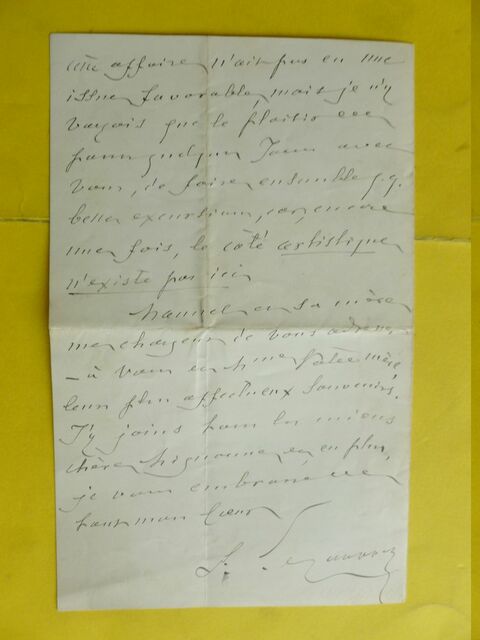 cette affaire n'ait pas eu une
issue favorable, mais je n'y
voyais que le plaisir de
passer quelques jours avec
vous, de faire ensemble q.q.
belles excursions, car, encore
une fois, le côté artistique
n'existe pas ici
et sa mère
me chargent de vous adresser
- à vous et à Mme votre mère
leurs plus affectueux souvenirs.
J'y joins tous les miens
chère Mignonne et en plus,
je vous embrasse de
tout mon cœur
L.